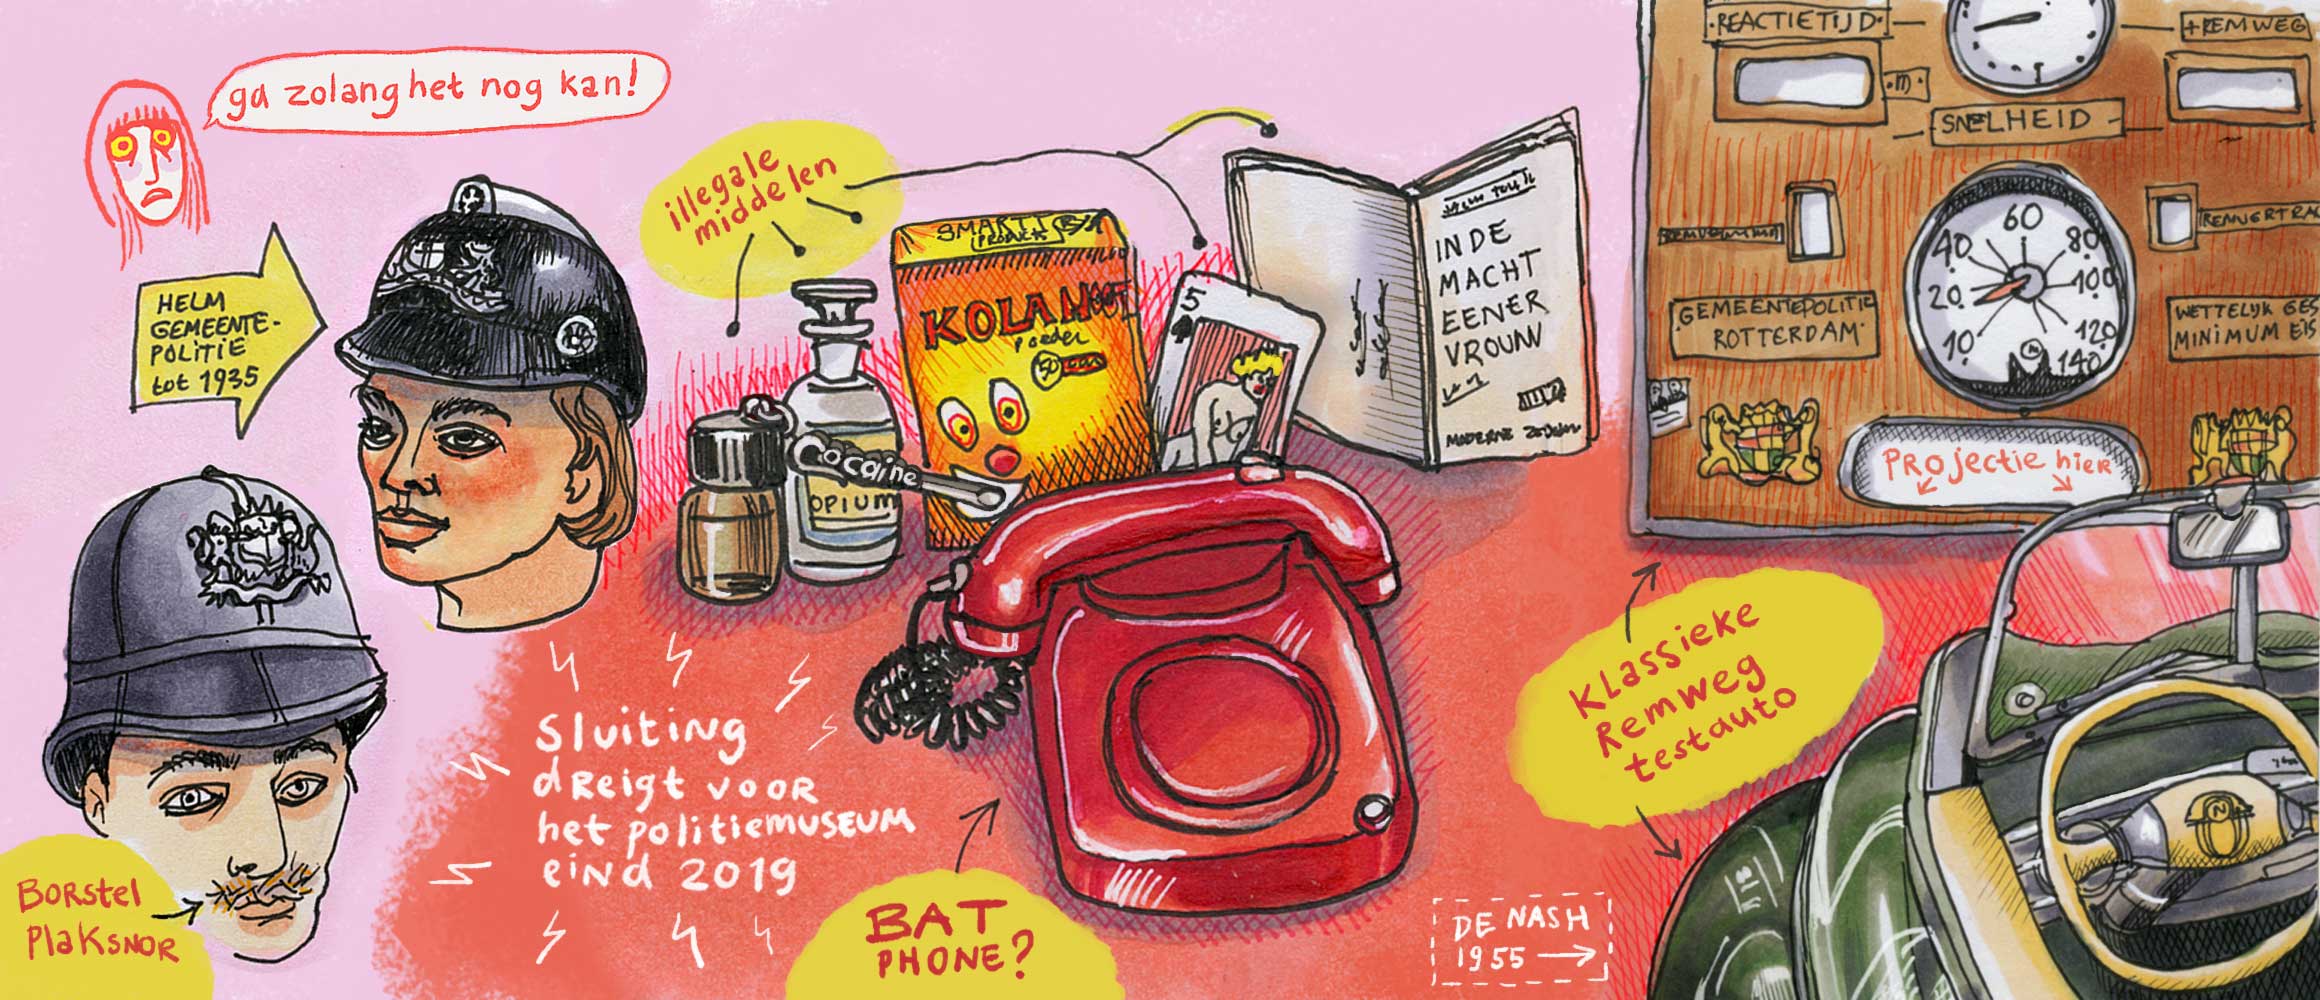 ga zolang het nog kan!
HELM
GEMEENTE-
POLITIE
tot 1935
BORSTEL
PLAKSNOR
illegale
middelen
SMARTT
PRODUCTS
KOLANOOT
poeder
50
Cocaine
OPIUM
5
IN DE
MACHT
EENER
VROUW
MODERNE
SLUITING
dREIgt VOOR
het politiemuseum
eiNd 2019
BAT
PHONE?
DE NASH
1955
KLASSIEKE
Remweg
testauto
REACTIETIJD
+REMWEG
.m.
SNELHEID
10 20 40 60 80 100 120 140
GEMEENTEPOLITIE
ROTTERDAM
WETTELIJK GES
MINIMUM EIS
PROJECTIE hier
N